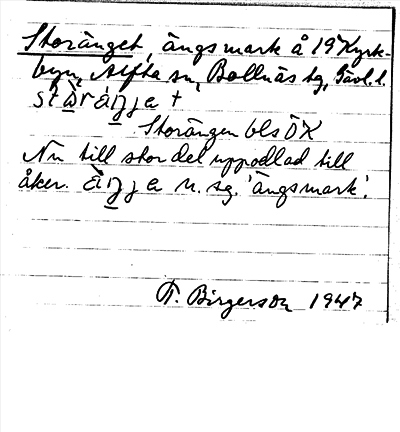 Storänget, ängsmark å 19 Kyrk-
byn, Alfta sn, Bollnäs tg, Gävl. l.
stòráŋje t
Storängen bls ÖK
Nu till stor del uppodlad till
åker. äŋje n. sg. 'ängsmark'.
T. Birgerson 1947